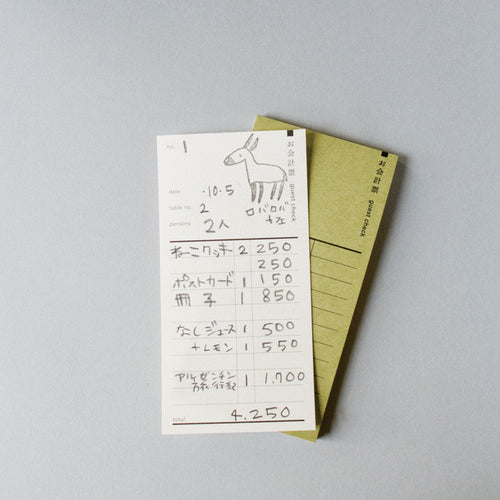 no. 1
お会計票 guest check
date ・10・5
table no. 2
persons 2人
ロバロバカフェ
ねこクッキー 2 250
250
ポストカード 1 150
冊子 1 850
なしジュース 1 500
+レモン 1 550
アルゼンチン 1 1,700
旅行記
total 4,250
お会計票 guest check